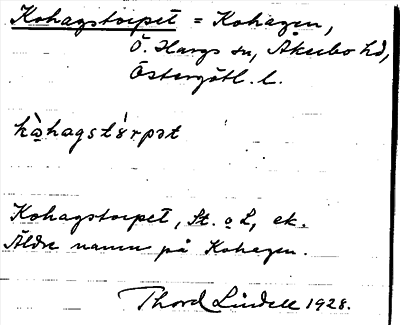 Kohagstorpet = Kohagen,
Ö. Hargs sn, Åkerbo hd,
Östergötl. l.
kòhagstórpət
Kohagstorpet, St. o L, ek.
Äldre namn på Kohagen.
Thord Lindell 1928.